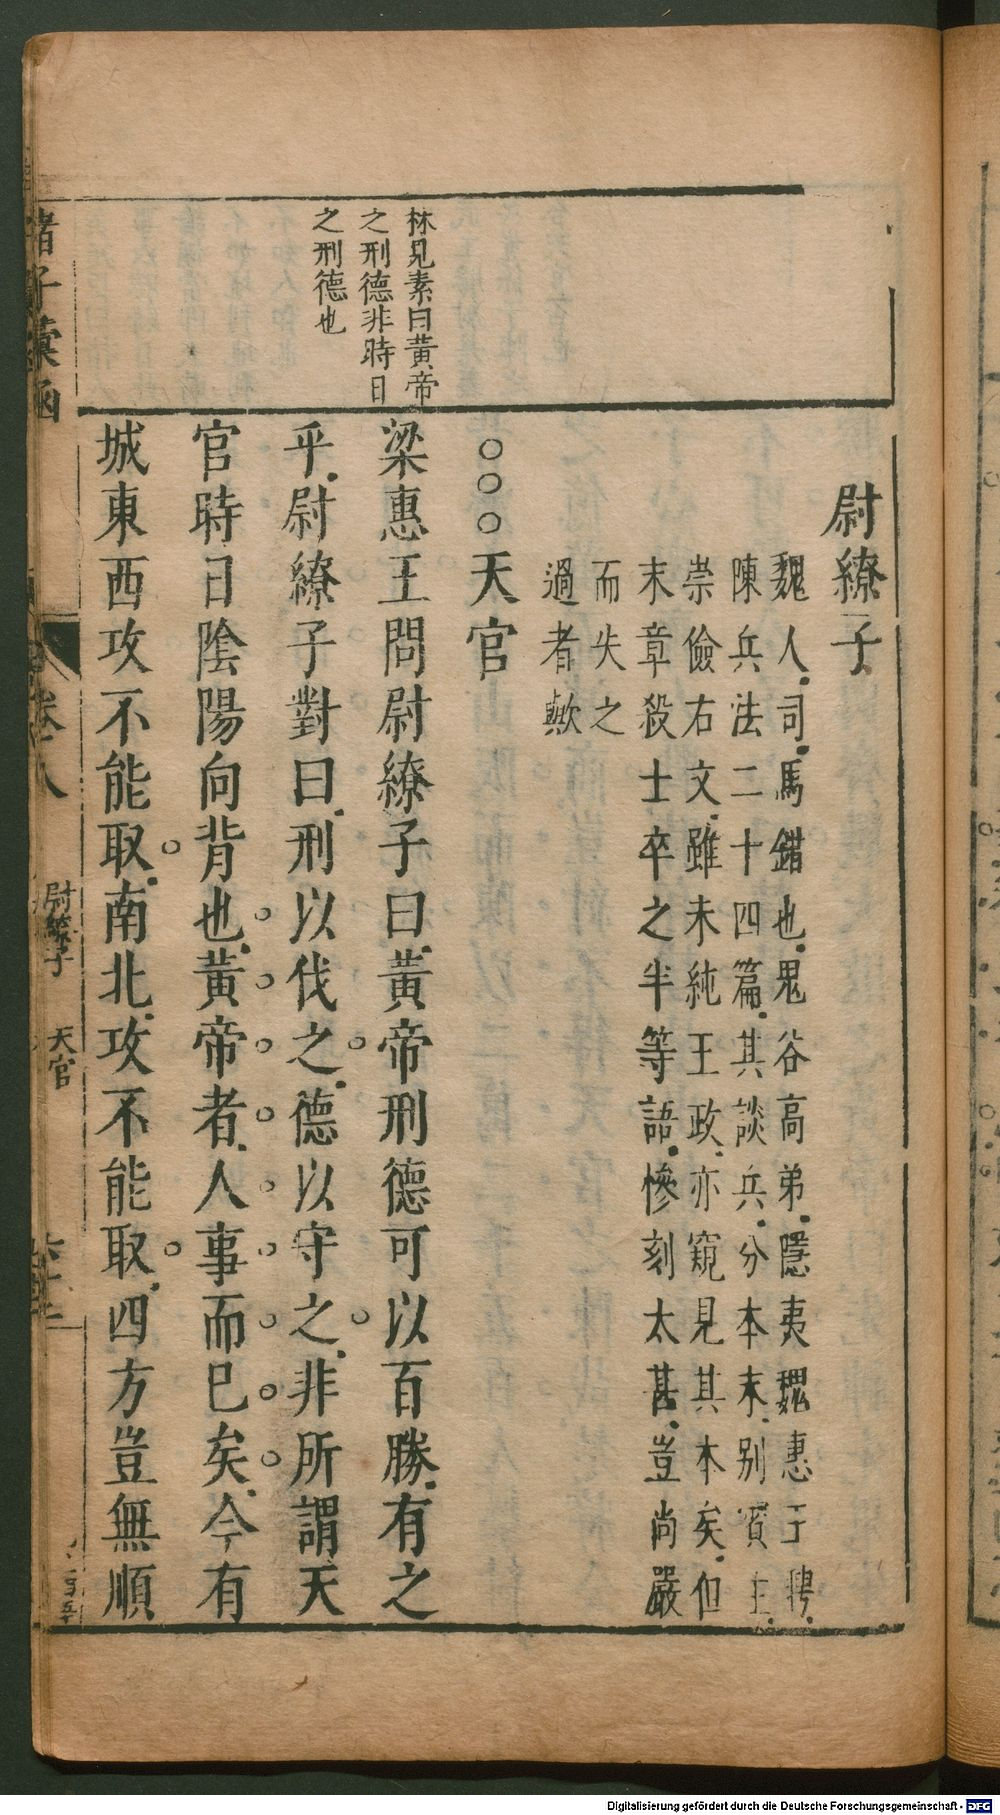 林見素曰黄帝
之刑德非時日
之刑德也
尉繚子
魏人司馬錯也鬼谷高弟隱夷魏惠王聘
陳兵法二十四篇其談兵分本末别賓主
崇儉右文雖未純王政亦窺見其本矣但
末章殺士卒之半等語慘刻太甚豈尚嚴
而失之
過者歟
○○○天官
梁惠王問尉繚子曰黃帝刑德可以百勝有之
乎尉繚子對曰刑以伐之德以守之非所謂天
官時日陰陽向背也黃帝者人事而已矣今有
城東西攻不能取南北攻不能取四方豈無順
諸子彙函
卷八
尉繚子
天官
Digitalisierung gefördert durch die Deutsche Forschungsgemeinschaft - DFG